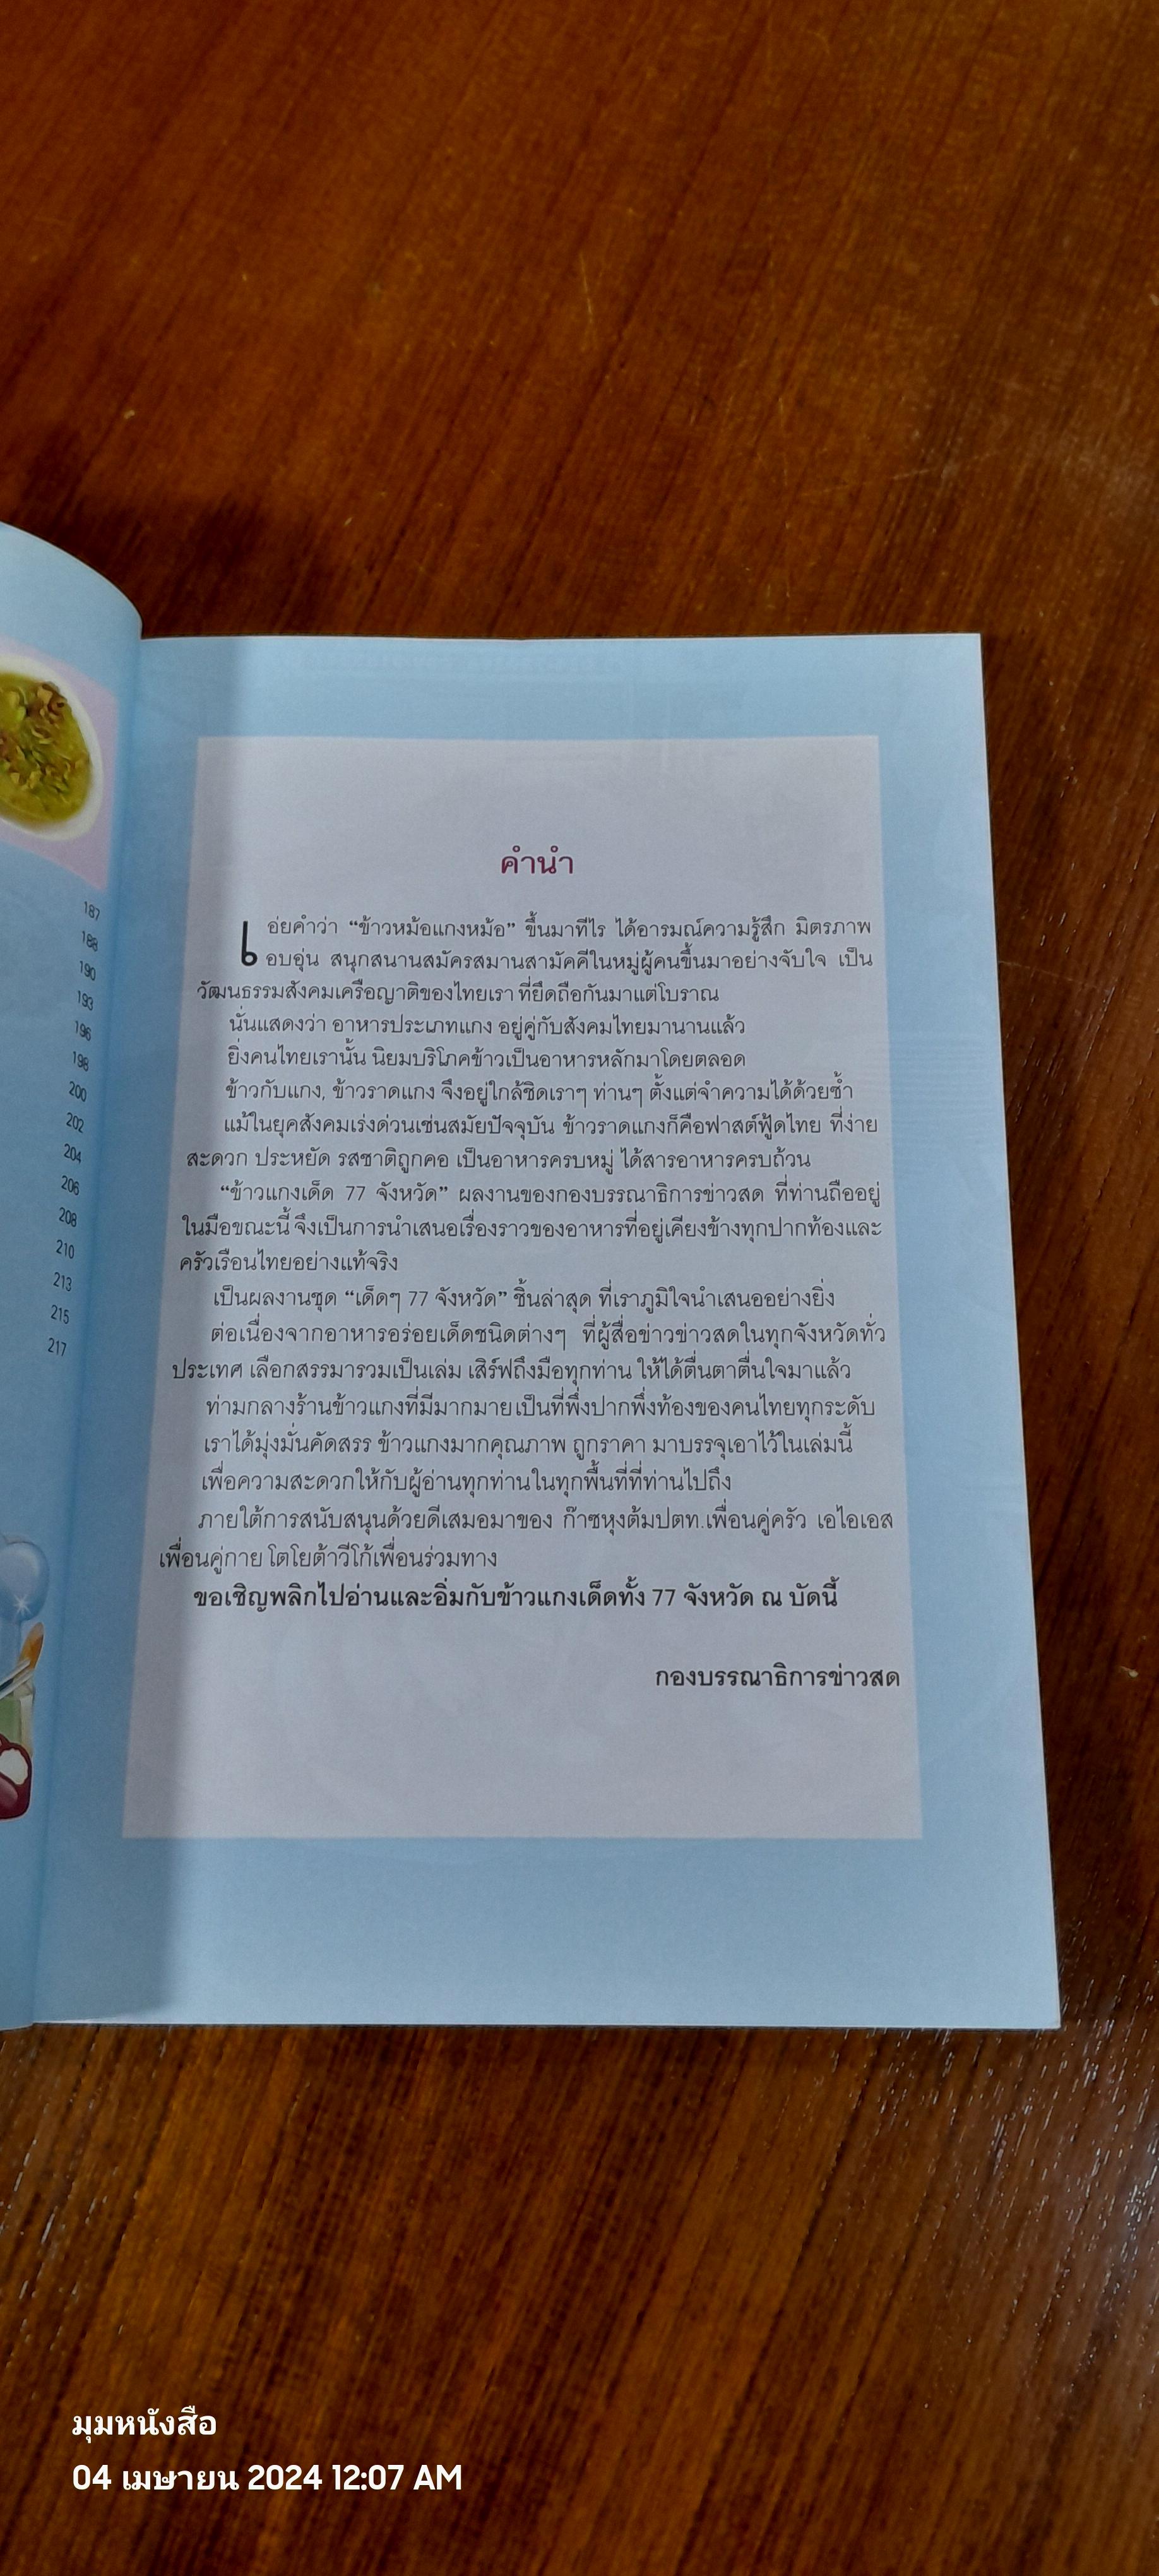 187
188
190
193
196
198
200
202
204
206
208
210
213
215
217
คำนำ
เอ่ยคำว่า “ข้าวหม้อแกงหม้อ” ขึ้นมาทีไร ได้อารมณ์ความรู้สึก มิตรภาพ
อบอุ่น สนุกสนานสมัครสมานสามัคคีในหมู่ผู้คนขึ้นมาอย่างจับใจ เป็น
วัฒนธรรมสังคมเครือญาติของไทยเรา ที่ยึดถือกันมาแต่โบราณ
นั่นแสดงว่า อาหารประเภทแกง อยู่คู่กับสังคมไทยมานานแล้ว
ยิ่งคนไทยเรานั้น นิยมบริโภคข้าวเป็นอาหารหลักมาโดยตลอด
ข้าวกับแกง, ข้าวราดแกง จึงอยู่ใกล้ชิดเราๆ ท่านๆ ตั้งแต่จำความได้ด้วยซ้ำ
แม้ในยุคสังคมเร่งด่วนเช่นสมัยปัจจุบัน ข้าวราดแกงก็คือฟาสต์ฟู้ดไทย ที่ง่าย
สะดวก ประหยัด รสชาติถูกคอ เป็นอาหารครบหมู่ ได้สารอาหารครบถ้วน
“ข้าวแกงเด็ด 77 จังหวัด” ผลงานของกองบรรณาธิการข่าวสด ที่ท่านถืออยู่
ในมือขณะนี้ จึงเป็นการนำเสนอเรื่องราวของอาหารที่อยู่เคียงข้างทุกปากท้องและ
ครัวเรือนไทยอย่างแท้จริง
เป็นผลงานชุด “เด็ดๆ 77 จังหวัด” ชิ้นล่าสุด ที่เราภูมิใจนำเสนออย่างยิ่ง
ต่อเนื่องจากอาหารอร่อยเด็ดชนิดต่างๆ ที่ผู้สื่อข่าวข่าวสดในทุกจังหวัดทั่ว
ประเทศ เลือกสรรมารวมเป็นเล่ม เสิร์ฟถึงมือทุกท่าน ให้ได้ตื่นตาตื่นใจมาแล้ว
ท่ามกลางร้านข้าวแกงที่มีมากมายเป็นที่พึ่งปากพึ่งท้องของคนไทยทุกระดับ
เราได้มุ่งมั่นคัดสรร ข้าวแกงมากคุณภาพ ถูกราคา มาบรรจุเอาไว้ในเล่มนี้
เพื่อความสะดวกให้กับผู้อ่านทุกท่านในทุกพื้นที่ที่ท่านไปถึง
ภายใต้การสนับสนุนด้วยดีเสมอมาของ ก๊าซหุงต้มปตท.เพื่อนคู่ครัว เอไอเอส
เพื่อนคู่กาย โตโยต้าวีโก้เพื่อนร่วมทาง
ขอเชิญพลิกไปอ่านและอิ่มกับข้าวแกงเด็ดทั้ง 77 จังหวัด ณ บัดนี้
กองบรรณาธิการข่าวสด
มุมหนังสือ
04 เมษายน 2024 12:07 AM